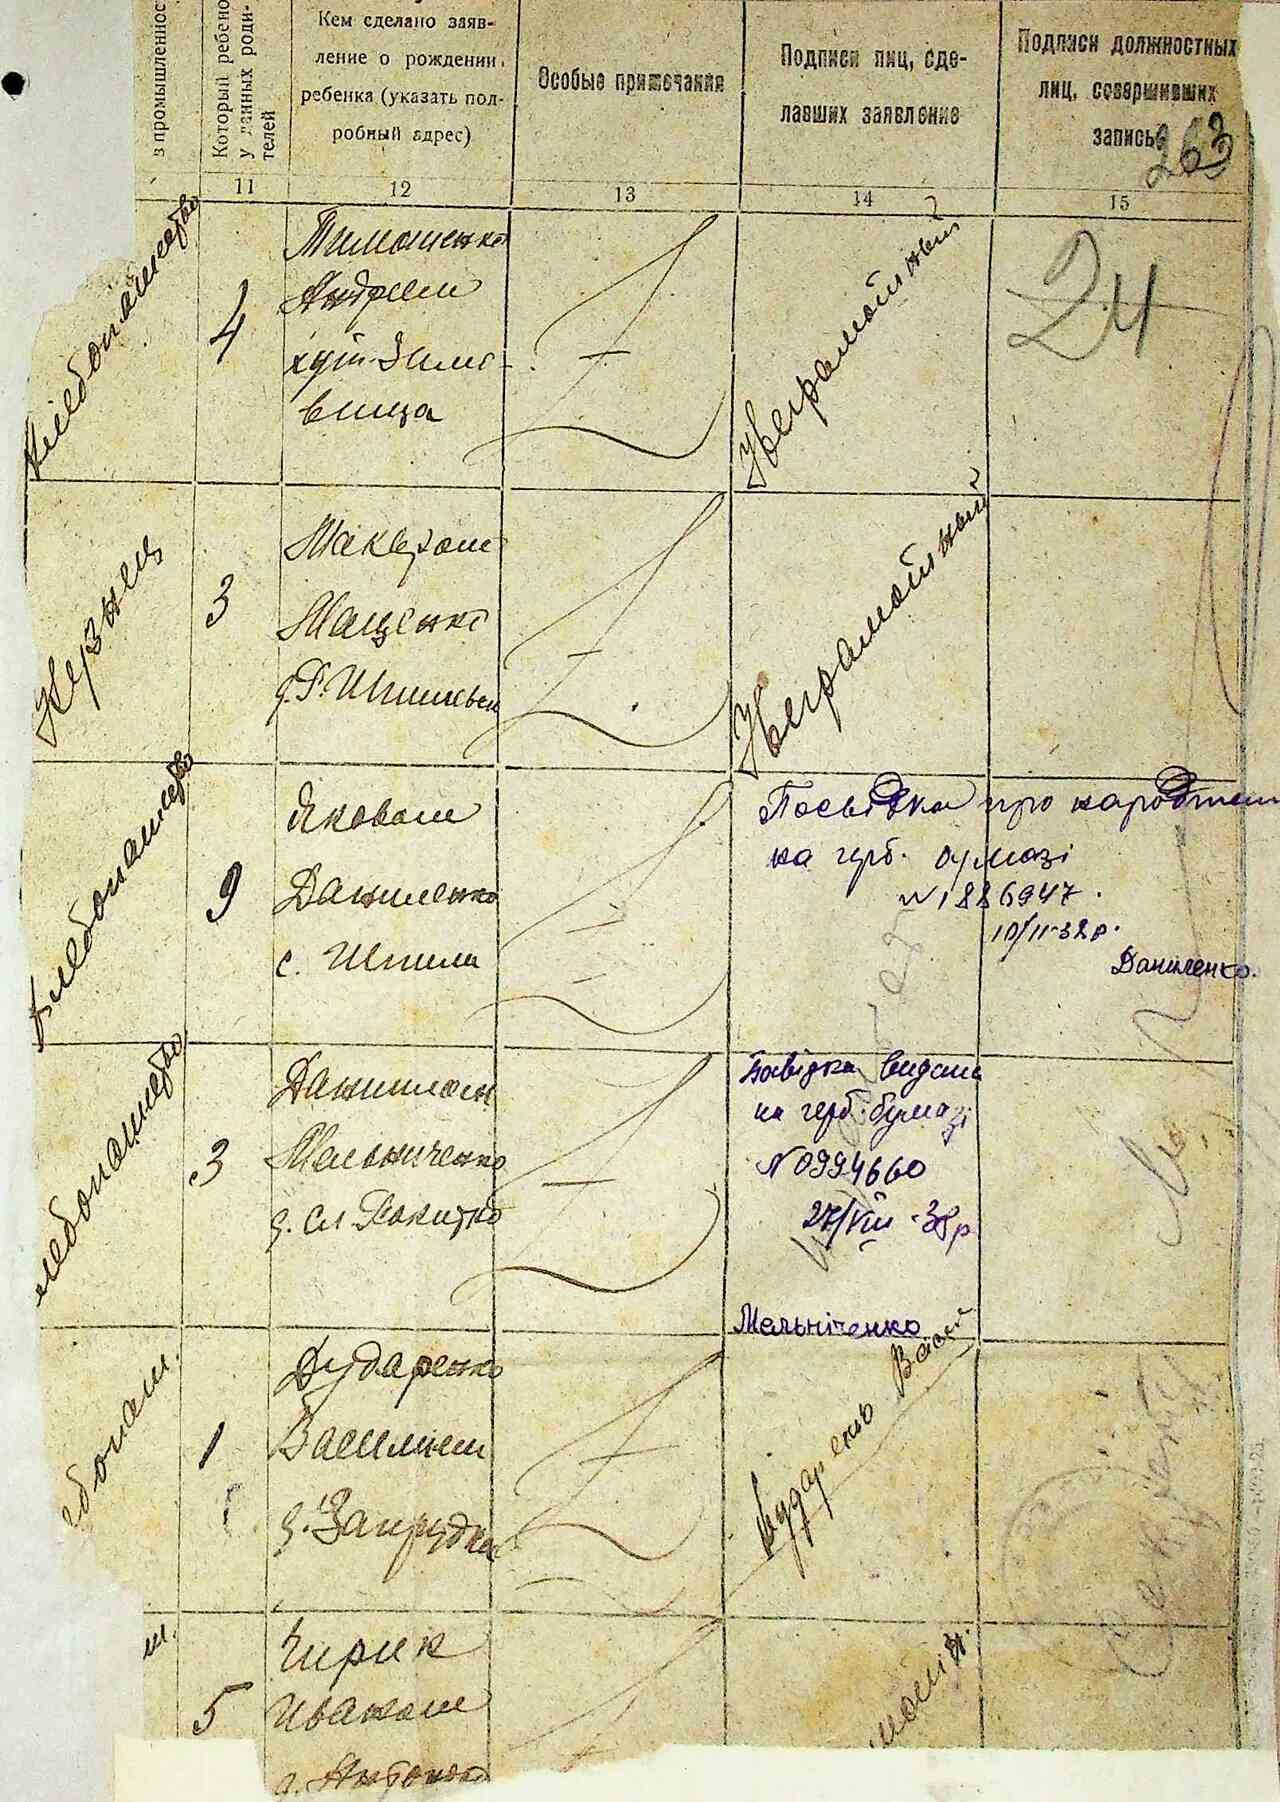 в промышленнос
Который ребено
у данных роди-
телей
Кем сделано заяв-
ление о рождении
ребенка (указать под-
робный адрес)
Особые примечания
Подписи лиц, сде-
лавших заявление
Подписи должностных
лиц, совершивших
запись
263
11
12
13
14
15
Хлебопашество
4
Тимошенко
Андреем
хут. Зимо-
вища
Неграмотный
24
Кузнец
3
Макаром
Мащенко
д. Р. Шпилев
Неграмотный
Хлебопашество
9
Яковом
Даниленко
с. Шпили
Посвідка про народжен
на герб. бумазі
№ 1886947.
10/II-32 р.
Даниленко.
лебопашество
3
Данилом
Мельниченко
д. Сл. Ракитна
Повідка видана
на герб. бумазі
№ 0994660
27/VIII-38 р
Мельніченко
ебопаш.
1
Дударенко
Василием
д. Запрудка
Дударенко Васил
ш.
5
Чирик
Иваном
мотн.
Секретар